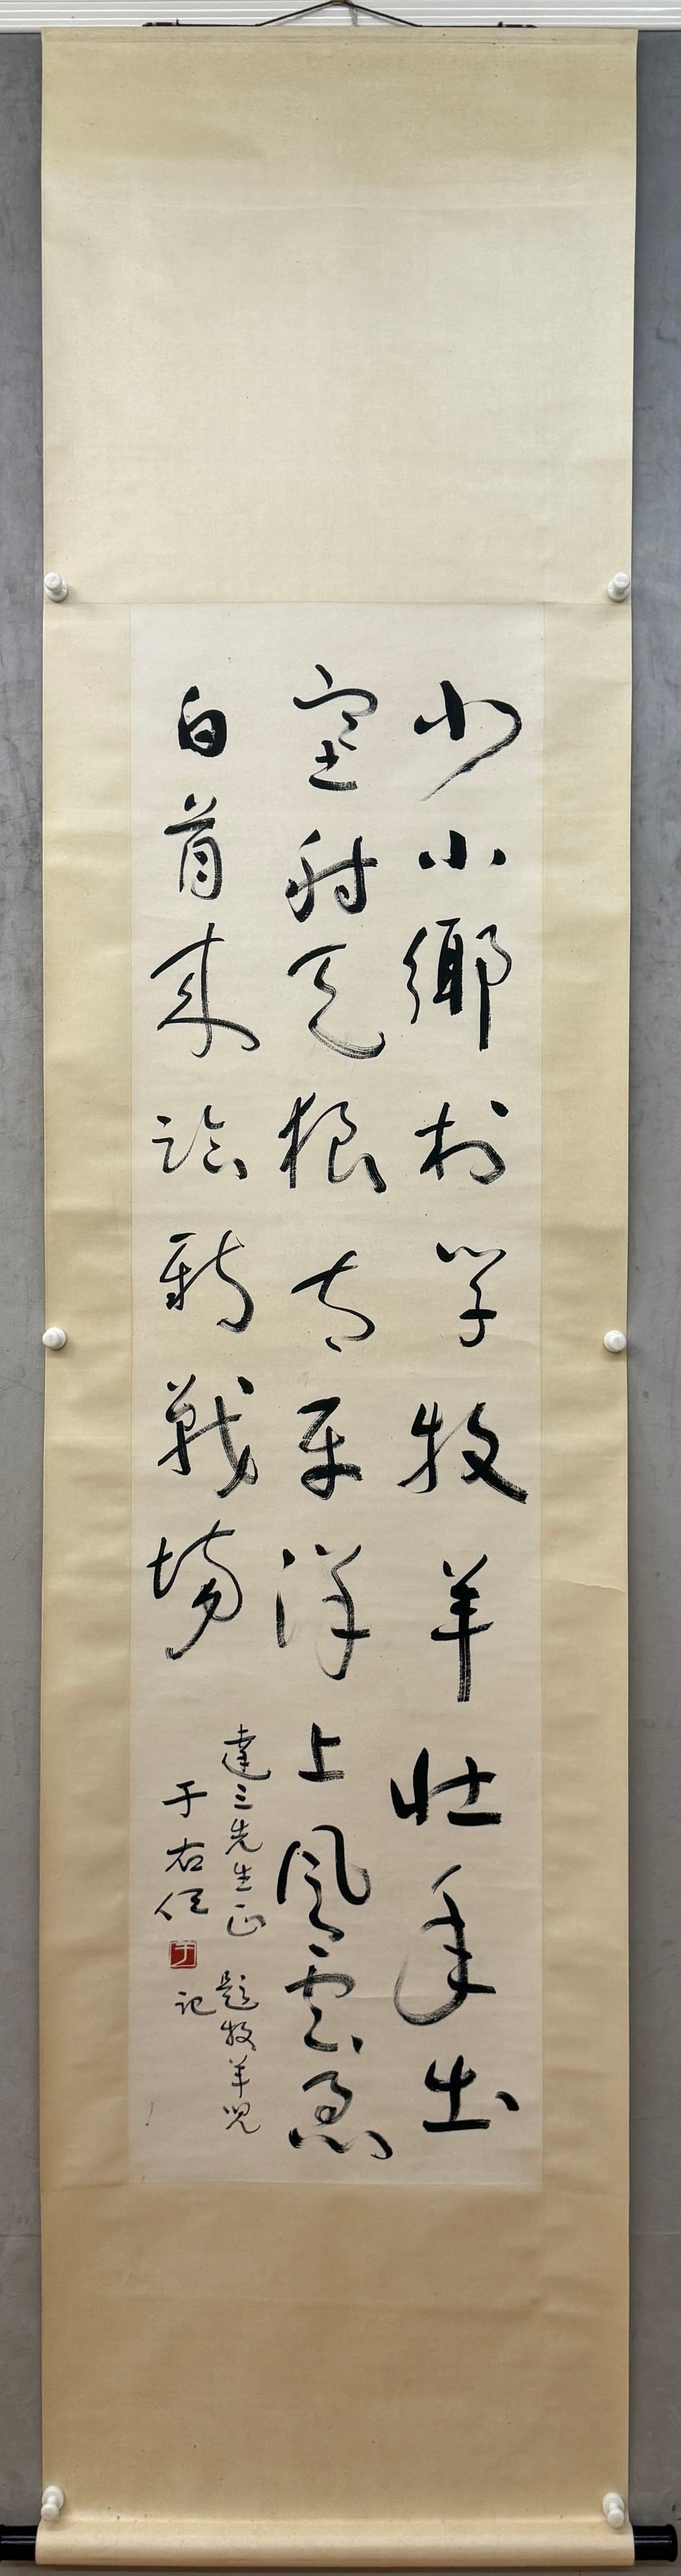 少小鄉村學牧羊壯年出
塞射天狼太平洋上風雲急
白首來論新戰場
達三先生正 題牧羊兒
記
于右任
于